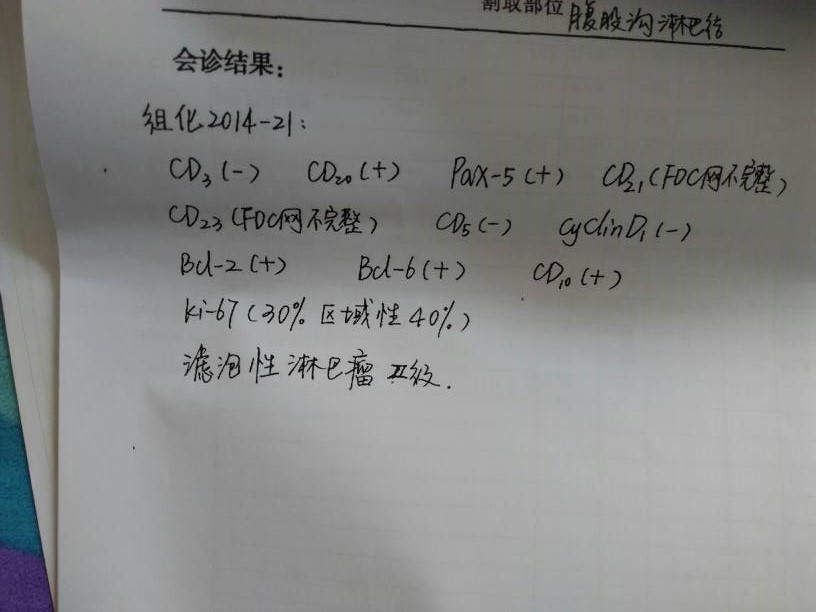 割取部位 腹股沟淋巴结
会诊结果：
组化2014-21：
CD3(-) CD20(+) Pax-5(+) CD21(FDC网不完整)
CD23(FDC网不完整) CD5(-) CyclinD1(-)
Bcl-2(+) Bcl-6(+) CD10(+)
Ki-67(30% 区域性40%)
滤泡性淋巴瘤 II级.